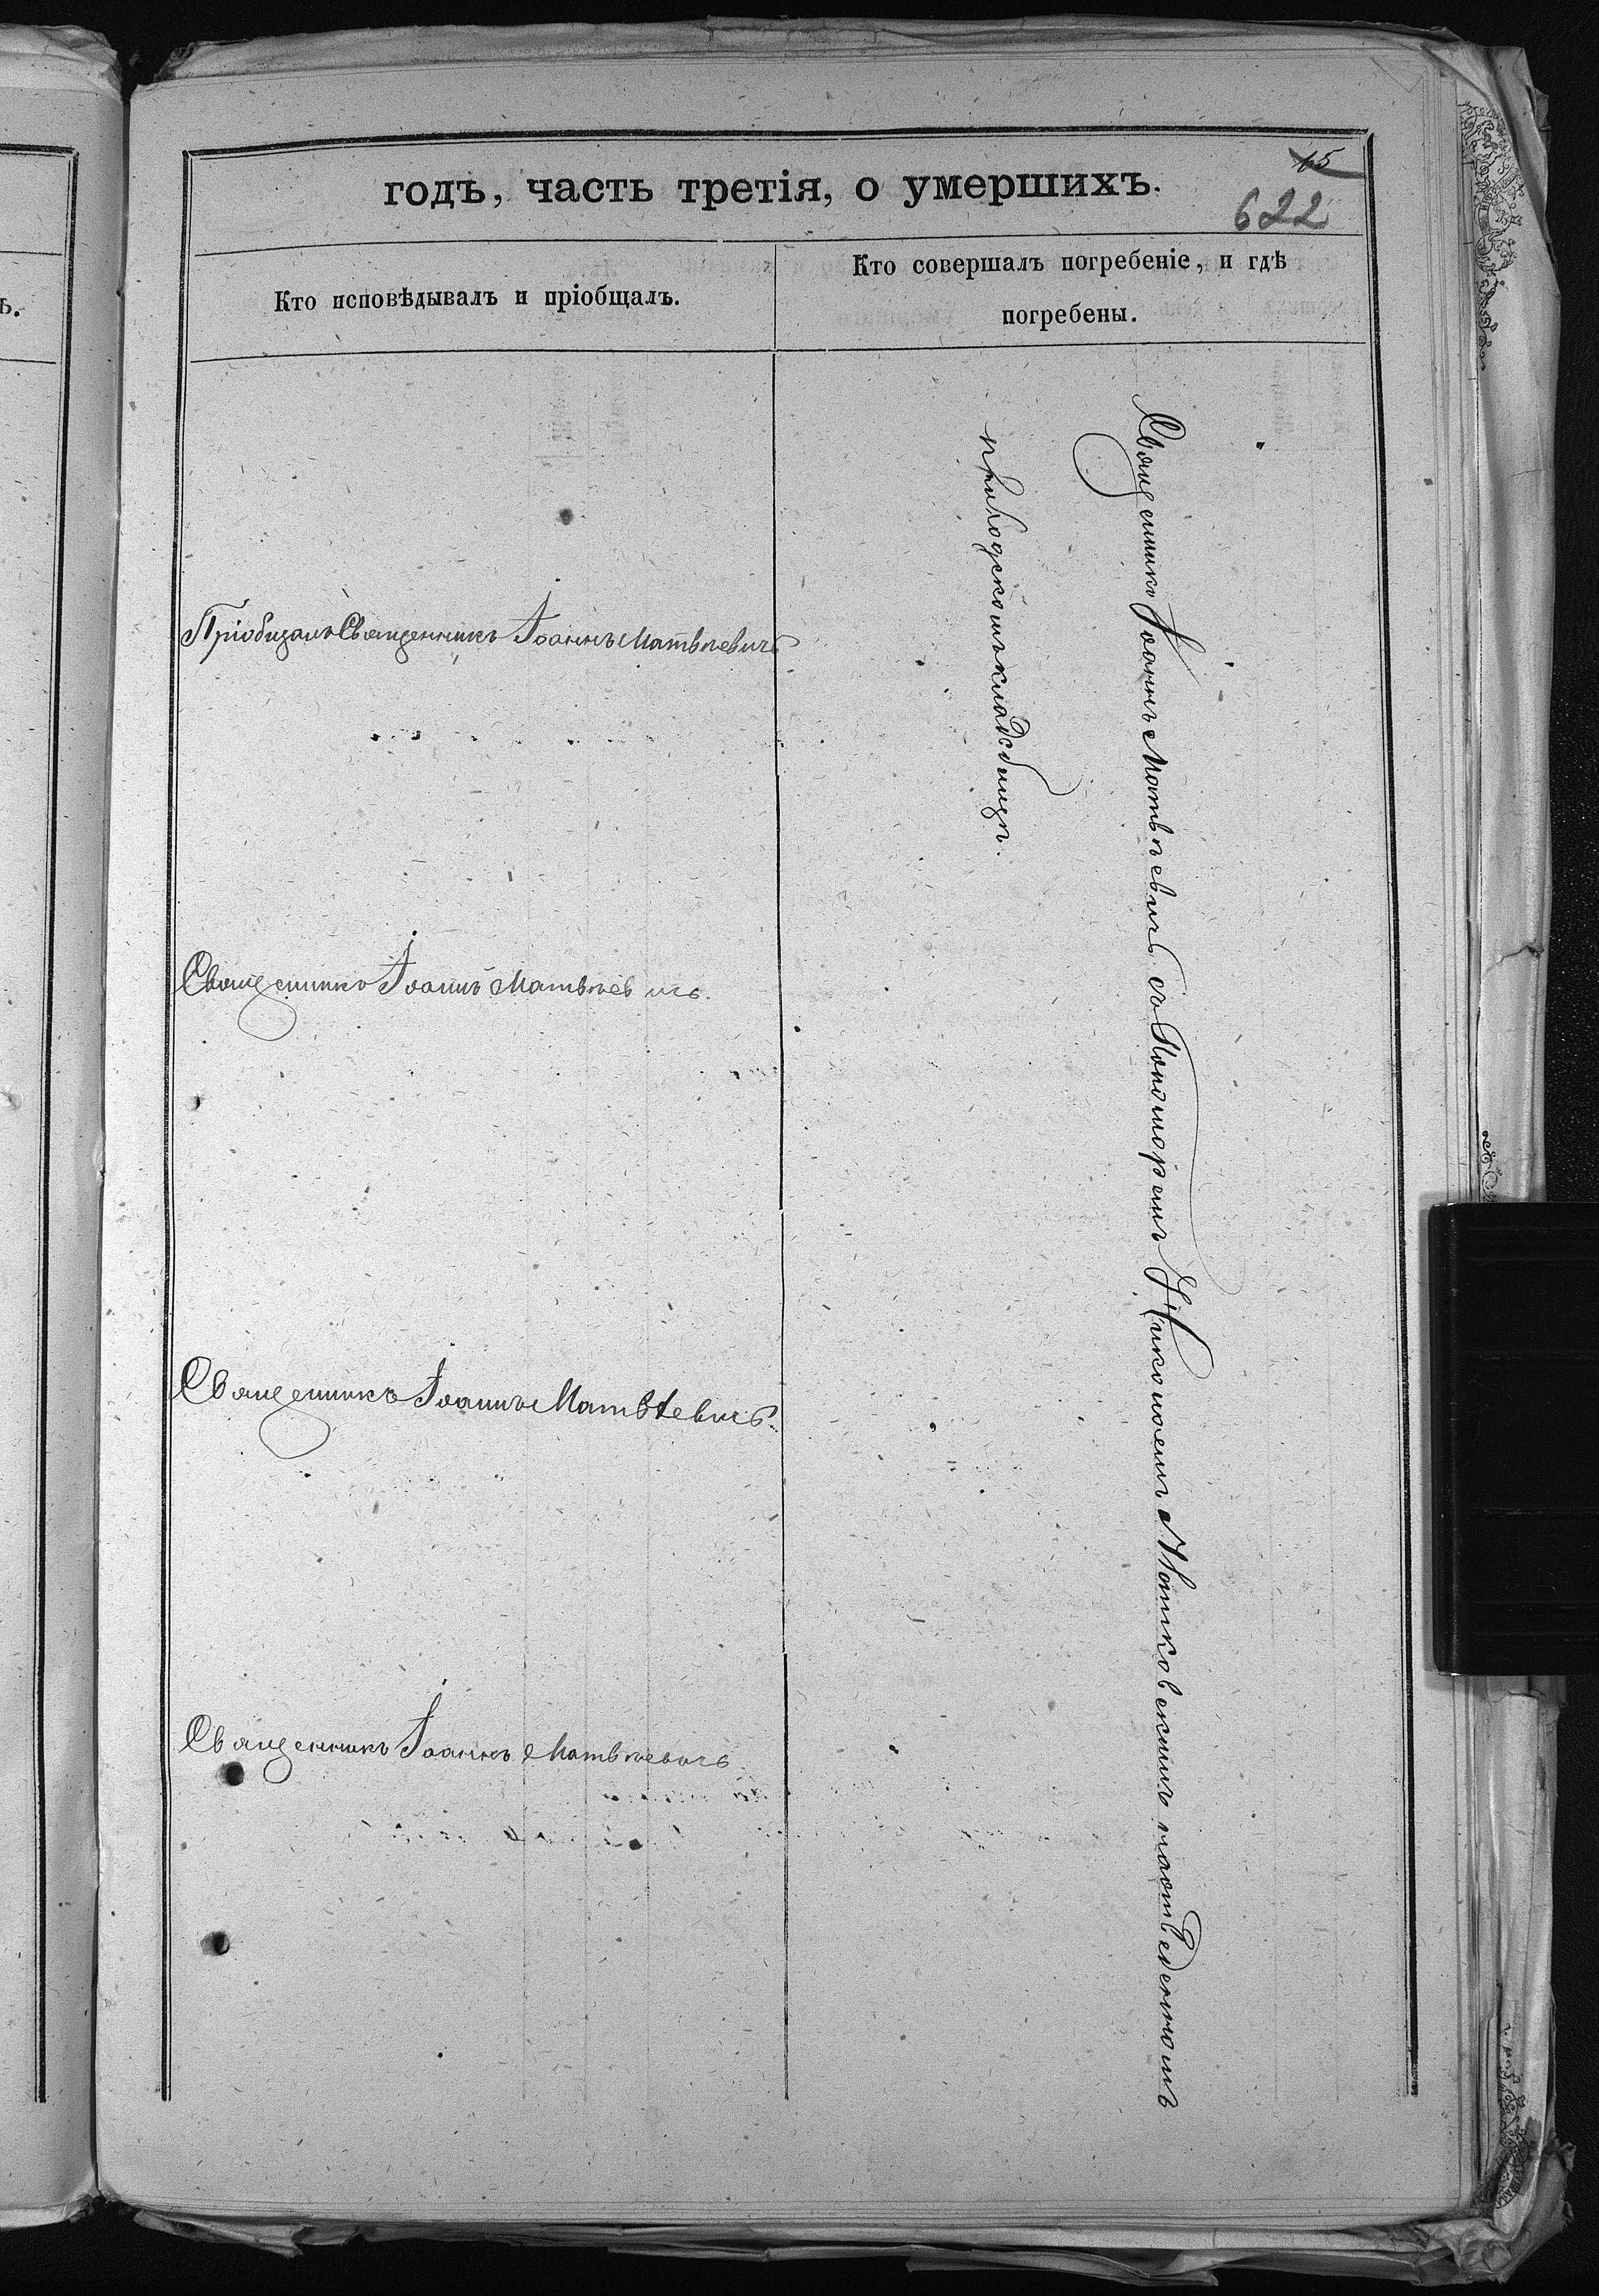 15
годъ, часть третія, о умершихъ.
622
Кто исповѣдывалъ и пріобщалъ.
Кто совершалъ погребеніе, и гдѣ
погребены.
Пріобщалъ Священникъ Іоаннъ Матвѣевичъ
Священникъ Іоаннъ Матвѣевичъ.
Священникъ Іоаннъ Матвѣевичъ.
Священникъ Іоаннъ Матвѣевичъ
Священникъ Іоаннъ Матвѣевичъ съ Пономаремъ Николаемъ на отведенномъ
приходскомъ кладбищѣ.
ъ.